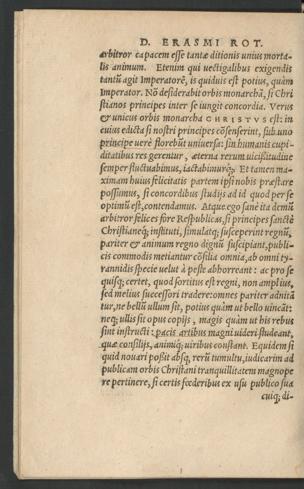 D. ERASMI ROT.
arbitror capacem esse tantæ ditionis unius morta-
lis animum. Etenim qui uectigalibus exigendis
tantũ agit Imperatorẽ, is quiduis est potius, quàm
Imperator. Nõ desiderabit orbis monarchã, si Chri
stianos principes inter se iungit concordia. Verus
& unicus orbis monarcha CHRISTVS est: in
cuius edicta si nostri principes cõsenserint, sub uno
principe uerè florebũt uniuersa: sin humanis cupi-
ditatibus res gerentur, æterna rerum uicissitudine
semper fluctuabimus, iactabimurq;. Et tamen ma-
ximam huius felicitatis partem ipsi nobis præstare
possumus, si concordibus studijs ad id quod per se
optimũ est, contendamus. Atque ego sanè ita demũ
arbitror felices fore Respublicas, si principes sanctè
Christianeq; instituti, simulatq; susceperint regnũ,
pariter & animum regno dignũ suscipiant, publi-
cis commodis metiantur cõsilia omnia, ab omni ty-
rannidis specie uelut à peste abhorreant: ac pro se
quisq; certet, quod sortitus est regni, non amplius,
sed melius successori tradere: omnes pariter adnitã
tur, ne bellũ ullum sit, potius quàm ut bello uincãt:
neq; ullis sit opus copijs, magis quàm ut his rebus
sint instructi: pacis artibus magni uideri studeant,
quæ consilijs, animiq; uiribus constant. Equidem si
quid nouari possit absq; rerũ tumultu, iudicarim ad
publicam orbis Christiani tranquillitatem magnope
re pertinere, si certis fœderibus ex usu publico sua
cuiq; di-